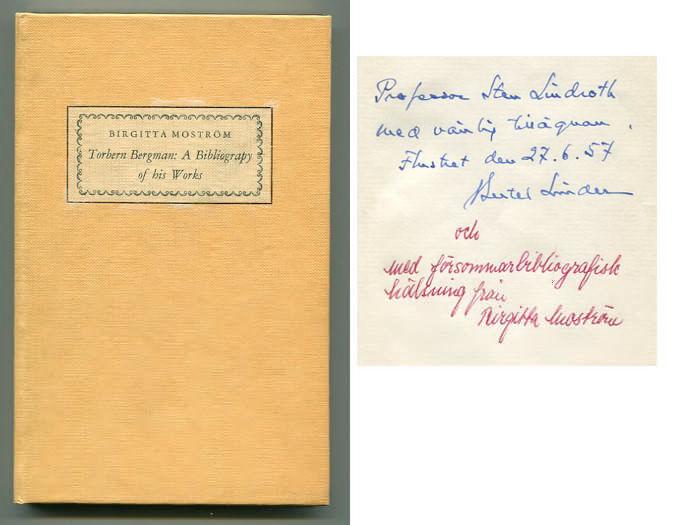 BIRGITTA MOSTRÖM
Torbern Bergman: A Bibliograpy
of his Works
Professor Sten Lindroth
med vänlig tillägnan.
Flustret den 27.6.57
och
med försommarbibliografisk
hälsning från
Birgitta Moström